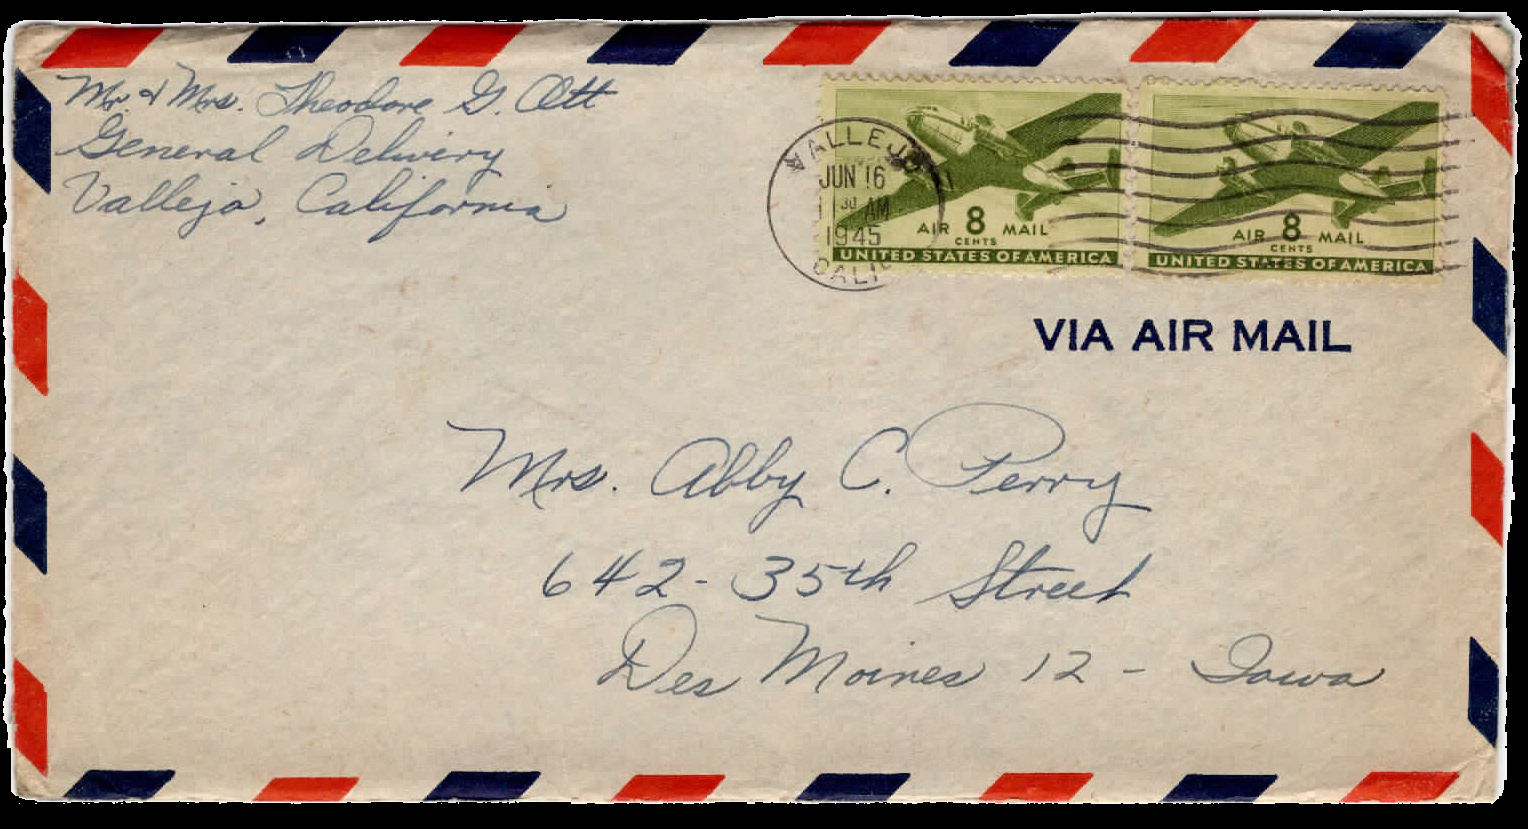 Mr. & Mrs. Theodore G. Ott
General Delivery
Vallejo, California
VALLEJO
JUN 16
11 30 AM
1945
CALIF
AIR 8 MAIL
CENTS
UNITED STATES OF AMERICA
AIR 8 MAIL
CENTS
UNITED STATES OF AMERICA
VIA AIR MAIL
Mrs. Abby C. Perry
642 - 35th Street
Des Moines 12 - Iowa